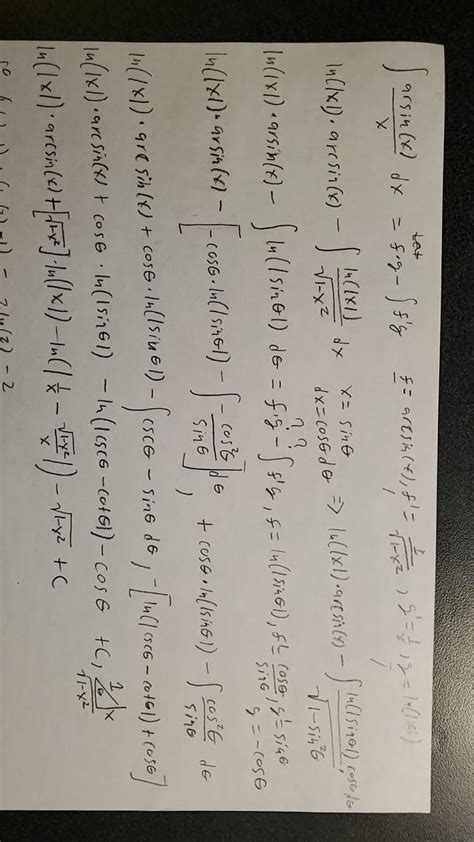 ∫ arsin(x)/x dx = f·g - ∫ f'g let f = arcsin(x), f' = 1/√1-x², g' = 1/x, g = ln(|x|)
ln(|x|)·arcsin(x) - ∫ ln(|x|)/√1-x² dx x = sinθ dx = cosθ dθ ⇒ ln(|x|)·arcsin(x) - ∫ ln(|sinθ|) cosθ dθ/√1-sin²θ
ln(|x|)·arsin(x) - ∫ ln(|sinθ|) dθ = f·g - ∫ f'g, f = ln(|sinθ|), f' = cosθ/sinθ, g' = sinθ g = -cosθ ??
ln(|x|)·arsin(x) - [-cosθ·ln(|sinθ|) - ∫ -cos²θ/sinθ] dθ, + cosθ·ln(|sinθ|) - ∫ cos²θ/sinθ dθ
ln(|x|)·arcsin(x) + cosθ·ln(|sinθ|) - ∫ cscθ - sinθ dθ, -[ln(|cscθ - cotθ|) + cosθ]
ln(|x|)·arcsin(x) + cosθ·ln(|sinθ|) - ln(|cscθ - cotθ|) - cosθ + C, 1 θ x √1-x²
ln(|x|)·arcsin(x) + [√1-x²]·ln(|x|) - ln(|1/x - √1-x²/x|) - √1-x² + C
= 2ln(2) - 2